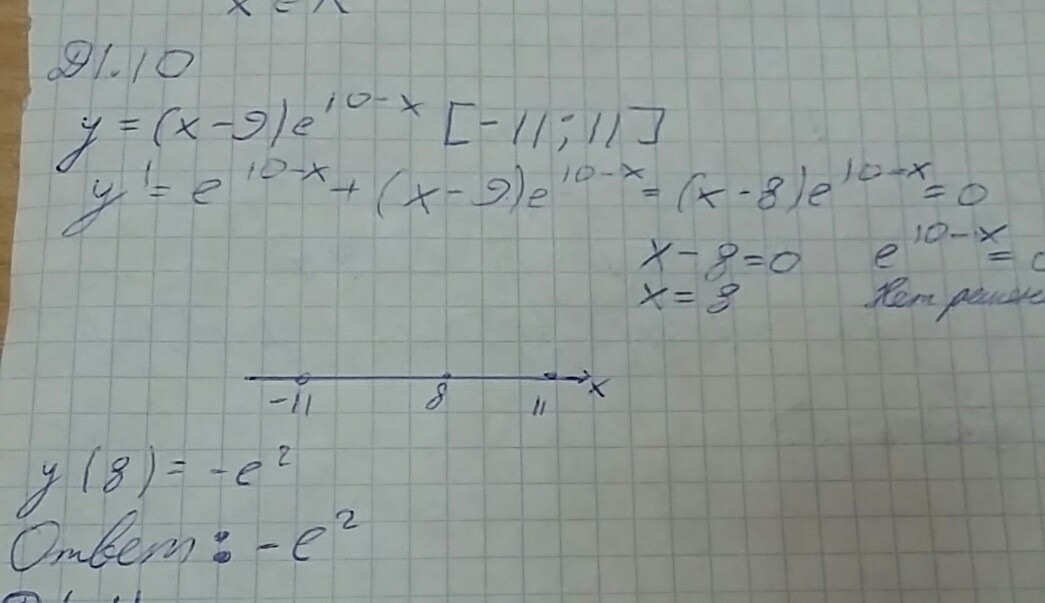 Д1.10
y = (x-9)e^{10-x} [-11; 11]
y' = e^{10-x} + (x-9)e^{10-x} = (x-8)e^{10-x} = 0
x-8=0 e^{10-x} =
x=8 Нет
-11 8 11 x
y(8) = -e²
Ответ: -e²